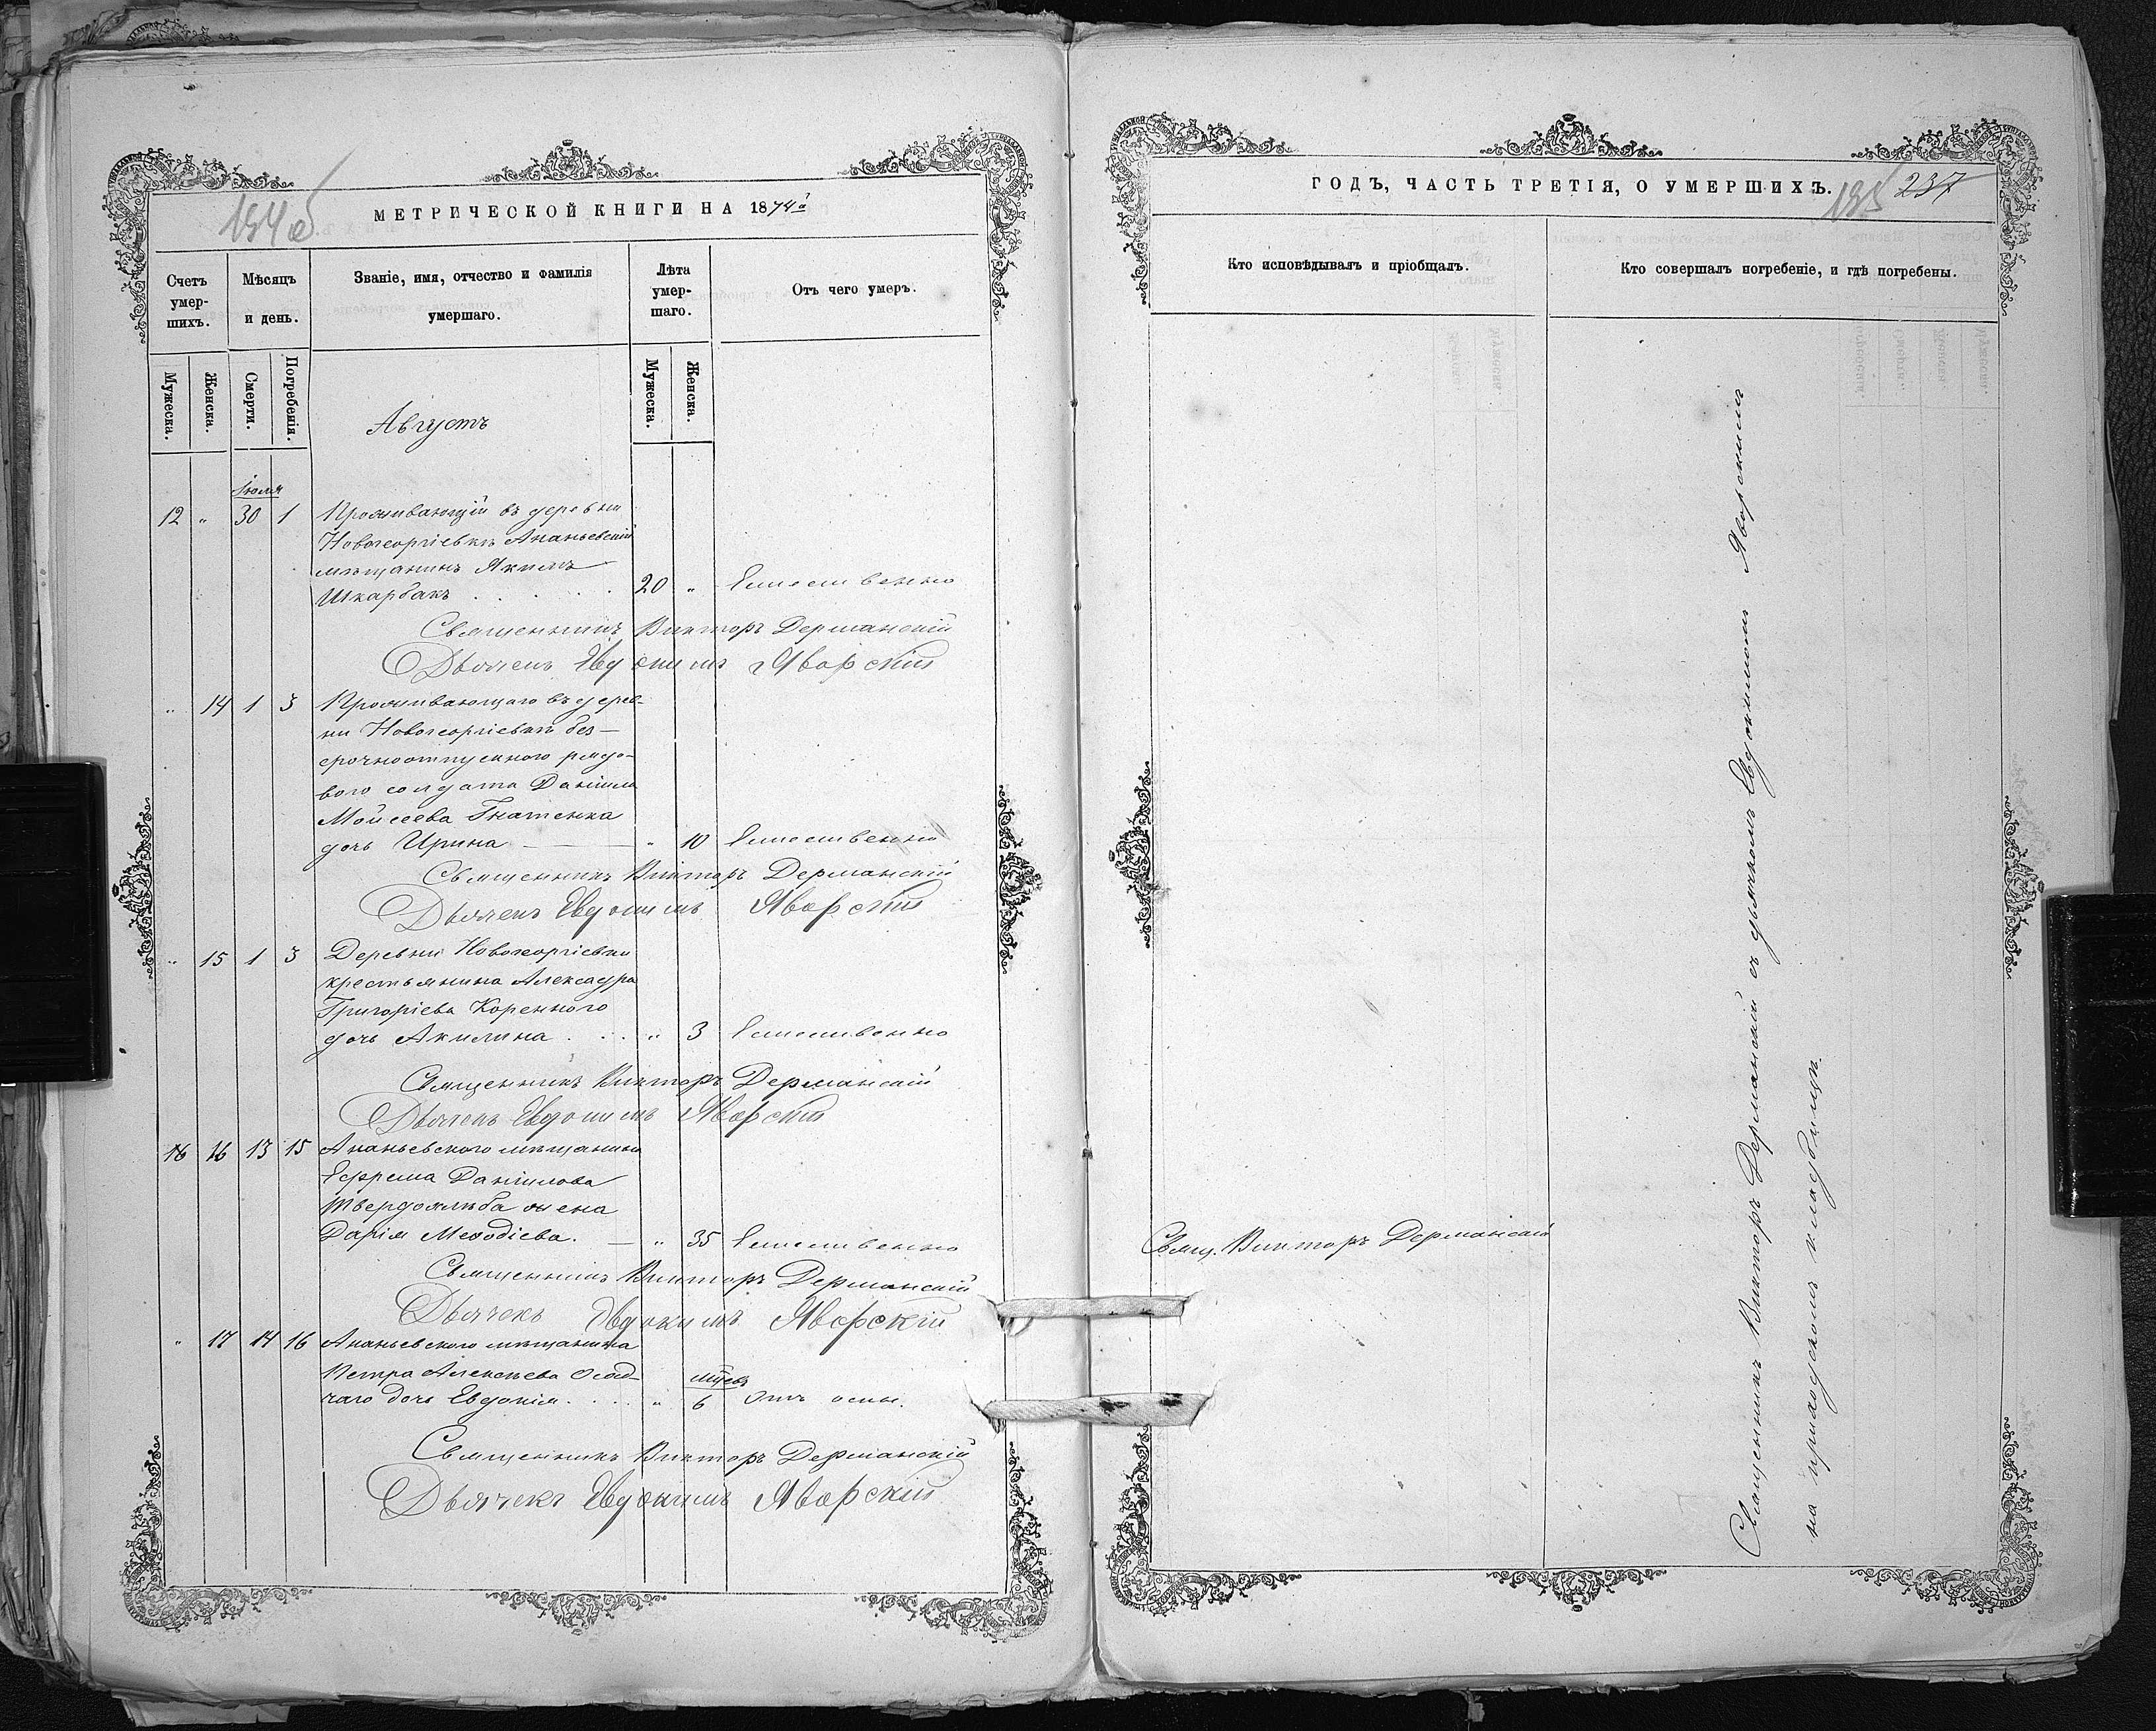 134об
МЕТРИЧЕСКОЙ КНИГИ НА 1874й
Счетъ умер-шихъ.
Мѣсяцъ и день.
Званіе, имя, отчество и фамилія умершаго.
Лѣта умер-шаго.
Отъ чего умеръ.
Мужеска.
Женска.
Смерти.
Погребенія.
Мужеска.
Женска.
Августъ
Іюля
12 " 30 1 Проживающій въ деревни
Новогеоргіевкѣ Ананьевскій
мѣщанинъ Якимъ
Шкарбакъ . . . . . 20 " Естественно
Священникъ Викторъ Дерманскій
Дьячекъ Евдокимъ Яворскій
" 14 1 3 Проживающаго въ дерев-
ни Новогеоргіевкѣ без-
срочноотпускного рядо-
вого солдата Даніила
Мойсеева Гнатенка
дочь Ирина — — — " 10 Естественно
Священникъ Викторъ Дерманскій
Дьячекъ Евдокимъ Яворскій
" 15 1 3 Деревни Новогеоргіевки
крестьянина Алексадра
Григоріева Коренного
дочь Акилина . . . " 3 Естественно
Священникъ Викторъ Дерманскій
Дьячекъ Евдокимъ Яворскій
16 16 13 15 Ананьевского мѣщанина
Ефрема Даніилова
Твердохлѣба жена
Дарія Меѳодіева. — " 35 Естественно
Священникъ Викторъ Дерманскій
Дьячекъ Евдокимъ Яворскій
" 17 14 16 Ананьевского мѣщанина
Петра Алексѣева Осад-
чаго дочь Евдокія . . . " мцевъ 6 Отъ оспы.
Священникъ Викторъ Дерманскій
Дьячекъ Евдокимъ Яворскій
ГОДЪ, ЧАСТЬ ТРЕТІЯ, О УМЕРШИХЪ.
135 237
Кто исповѣдывалъ и пріобщалъ.
Кто совершалъ погребеніе, и гдѣ погребены.
Свящ. Викторъ Дерманскій
Священникъ Викторъ Дерманскій съ дьячкомъ Евдокимомъ Яворскимъ
на приходскомъ кладбищѣ.